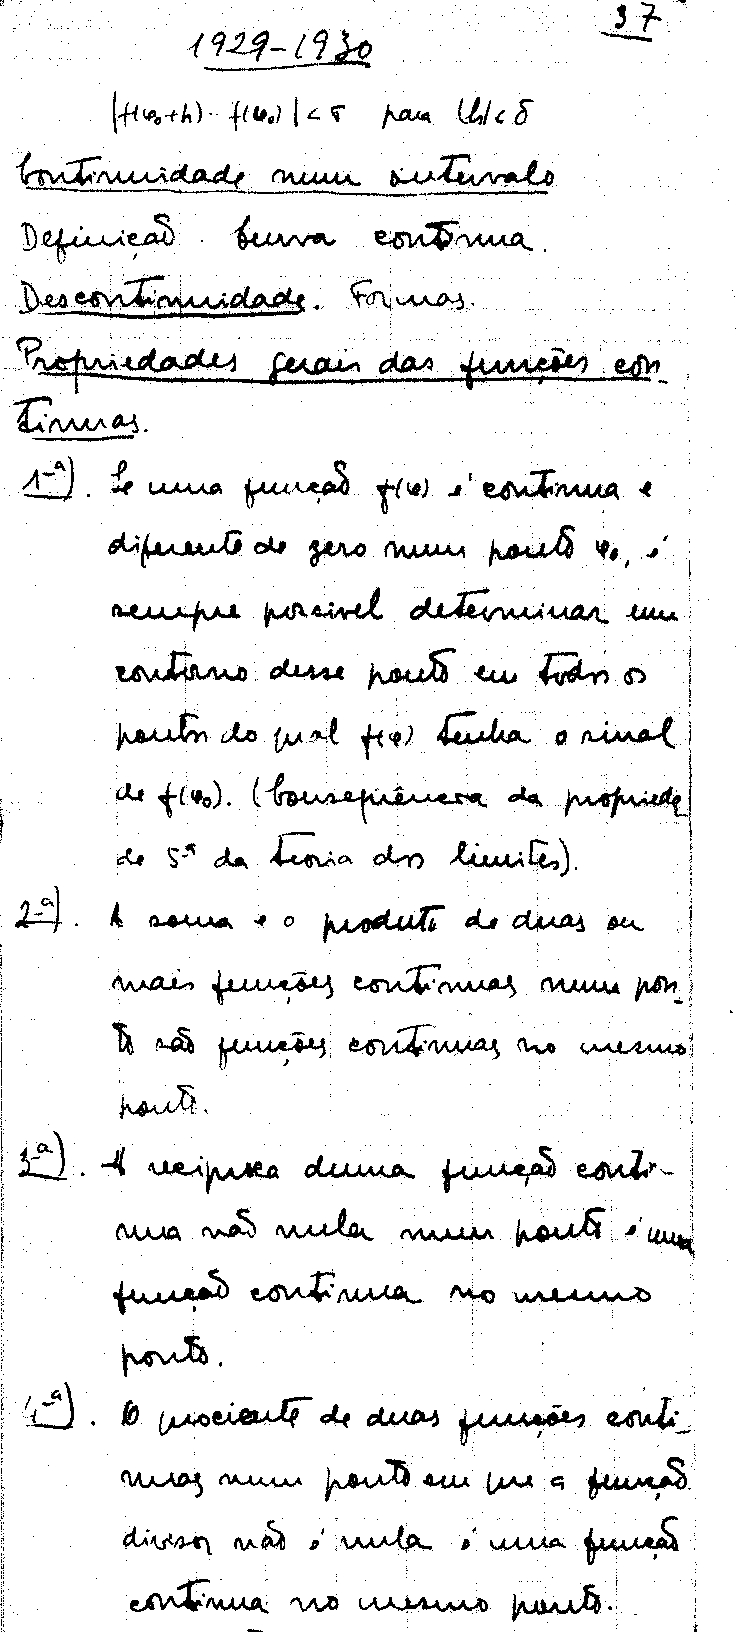 37
1929-1930
|f(φ₀+h) - f(φ₀)| < σ para |h| < δ
Continuidade num intervalo
Definição. Curva contínua.
Descontinuidade. Formas.
Propriedades gerais das funções con-
tínuas.
1ª). Se uma função f(φ) é contínua e
diferente de zero num ponto φ₀, é
sempre possivel determinar um
contorno desse ponto em todos os
pontos do qual f(φ) tenha o sinal
de f(φ₀). (Consequência da proprieda
de 5ª da teoria dos limites).
2ª). A soma e o produto de duas ou
mais funções contínuas num pon-
to são funções contínuas no mesmo
ponto.
3ª). A recíproca duma função contí-
nua não nula num ponto é uma
função contínua no mesmo
ponto.
4ª). O quociente de duas funções contí-
nuas num ponto em que a função
divisor não é nula é uma função
contínua no mesmo ponto.